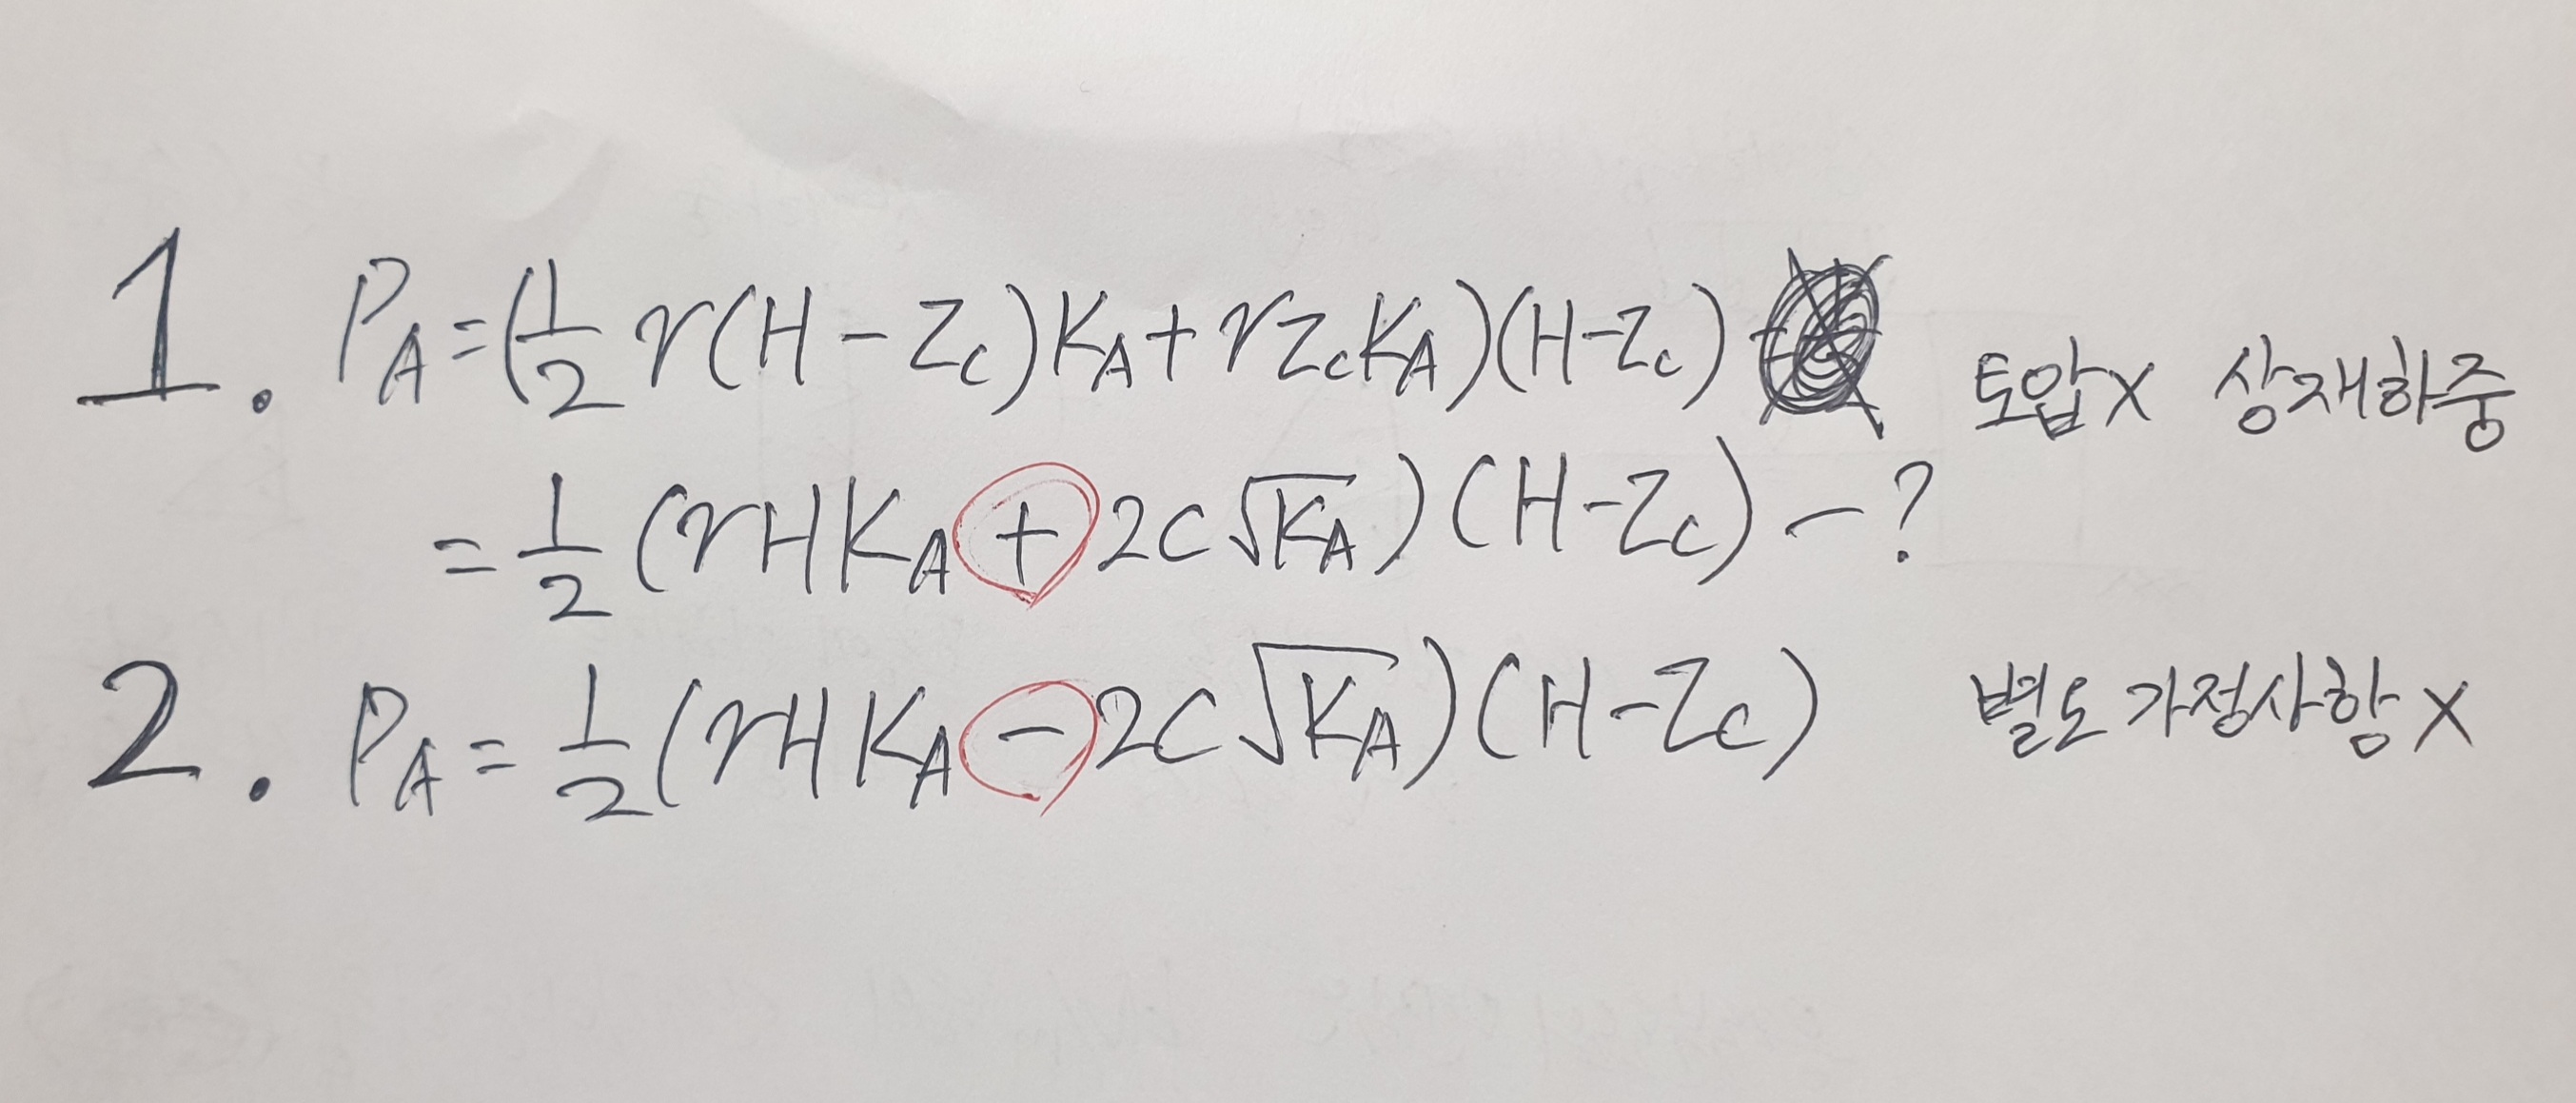 1. P_A = (1/2 γ(H - Z_c)K_A + γZ_cK_A)(H - Z_c) 토압X 상재하중
= 1/2 (γHK_A + 2C√K_A)(H - Z_c) - ?
2. P_A = 1/2 (γHK_A - 2C√K_A)(H - Z_c) 별도 가정사항 X